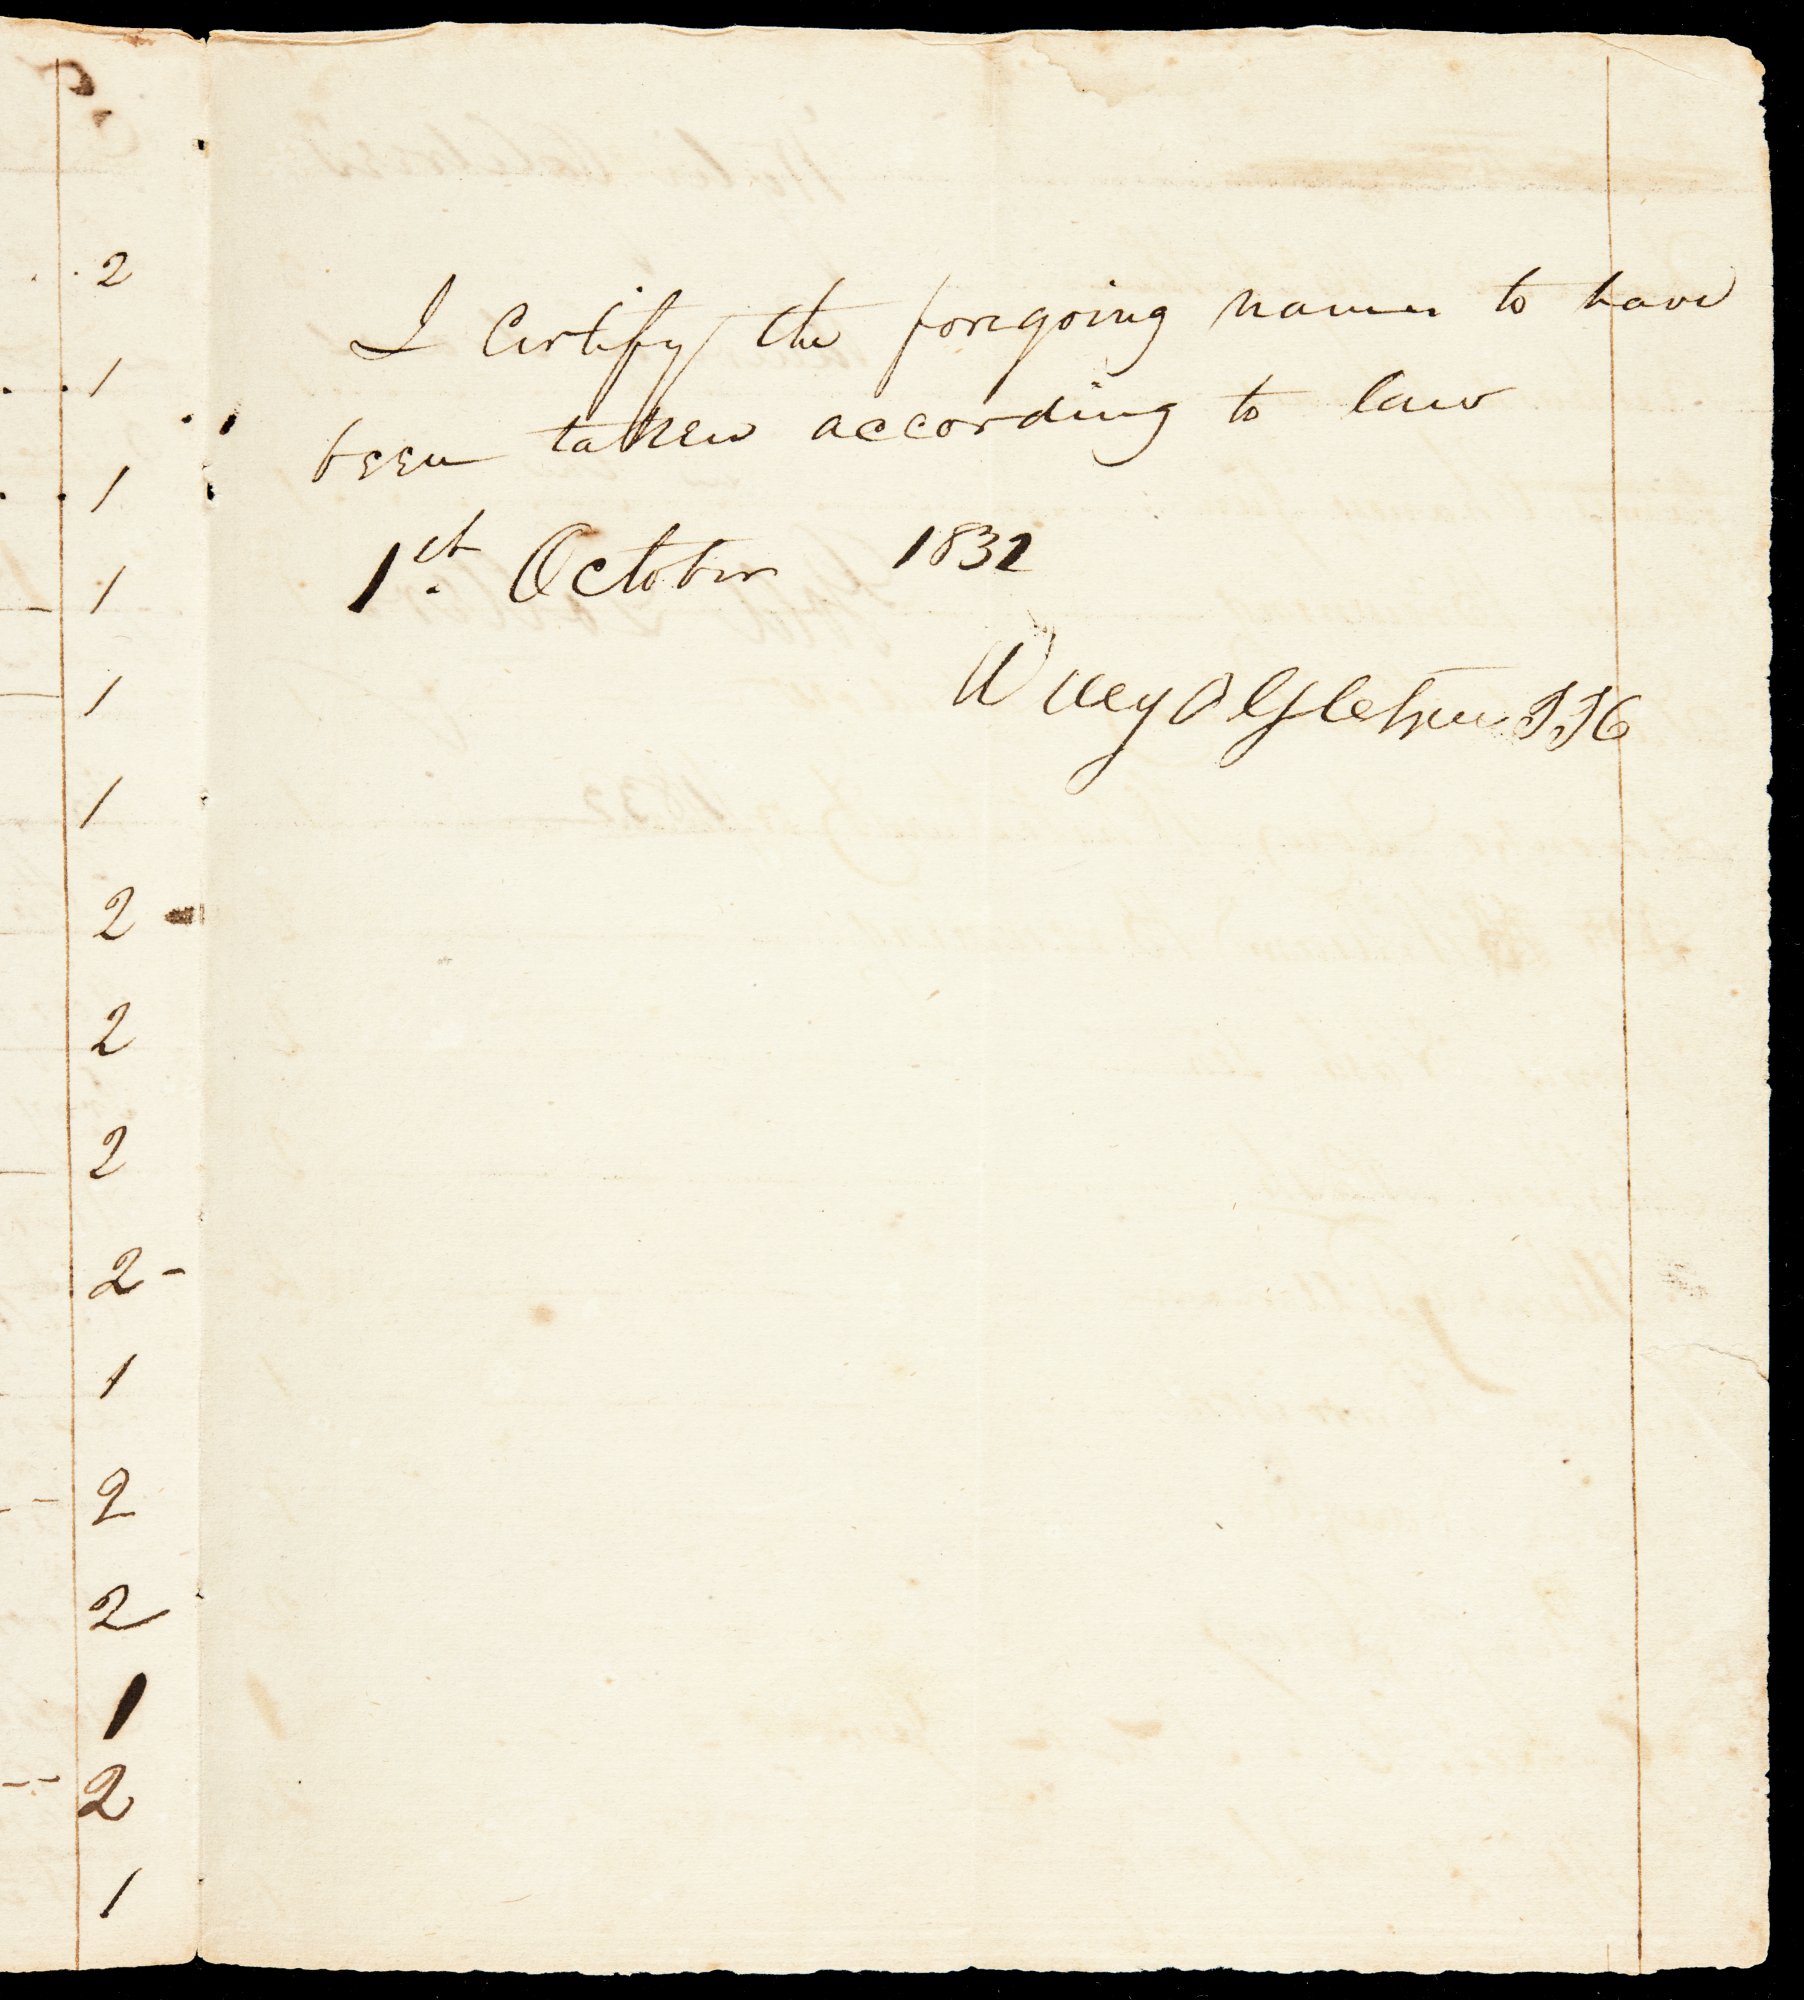 2
1
1
1
1
1
2
2
2
2 -
1
2
2
1
2
1
I Certify the foregoing names to have
been taken according to law
1st. October 1832